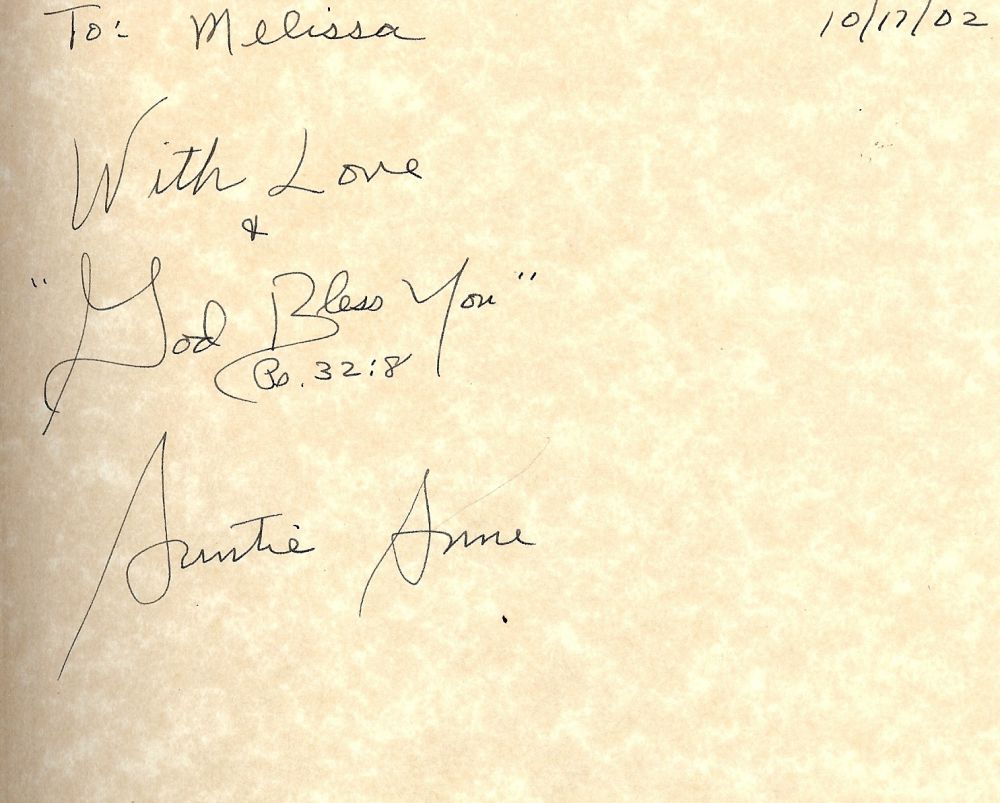 To: Melissa 10/17/02
With Love
&
"God Bless You"
Ps. 32:8
Auntie Anne